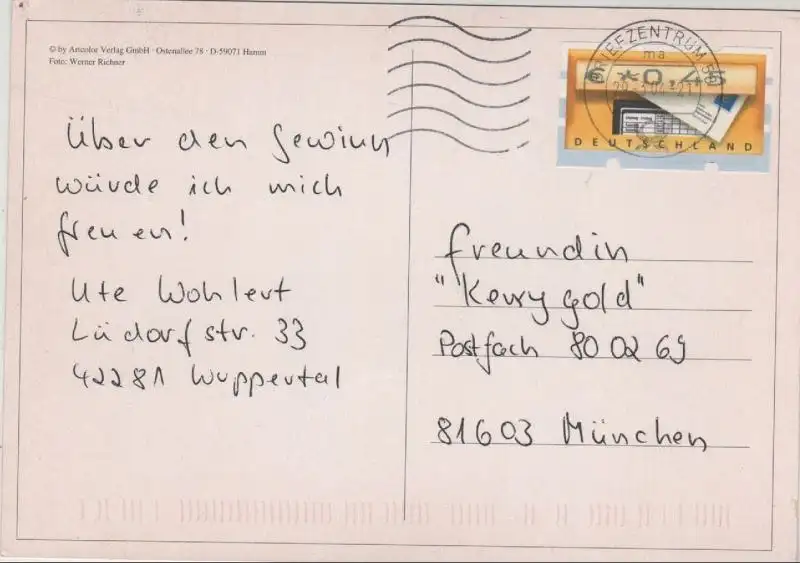 © by Artcolor Verlag GmbH · Ostenallee 78 · D-59071 Hamm
Foto: Werner Richner
BRIEFZENTRUM
ma
DEUTSCHLAND
Über den Gewinn
würde ich mich
freuen!
Ute Wohlert
Lüdorfstr. 33
42281 Wuppertal
freundin
"Kerrygold"
Postfach 80 02 69
81603 München